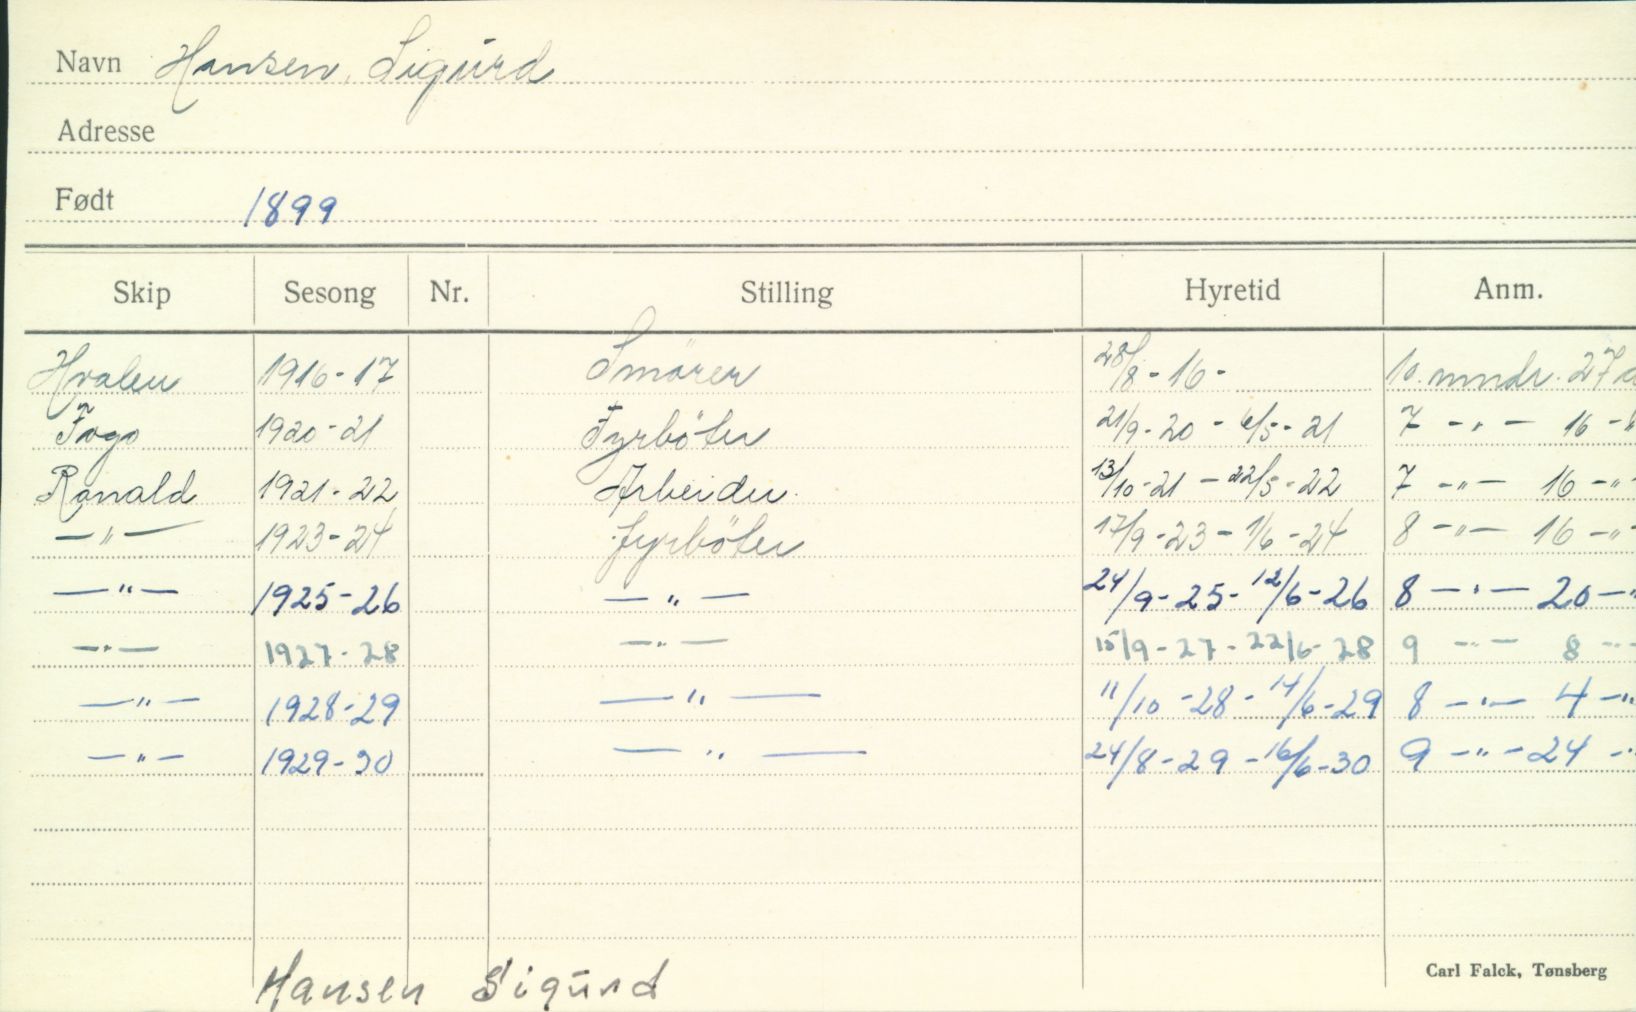 Navn Hansen, Sigurd
Adresse
Født 1899
Skip Sesong Nr. Stilling Hyretid Anm.
Hvalen 1916-17 Smörer 28/8-16- 10. mndr. 27 d
Fogo 1920-21 Fyrböter 21/9-20 - 6/5-21 7 -"- 16 -"
Ronald 1921-22 Arbeider 13/10-21 - 22/5-22 7 -"- 16 -"-
-"- 1923-24 fyrböter 17/9-23 - 1/6-24 8 -"- 16 -"
-"- 1925-26 -"- 24/9-25-12/6-26 8 -"- 20 -"
-"- 1927-28 -"- 15/9-27-22/6-28 9 -"- 8 -"-
-"- 1928-29 -"- 11/10-28-14/6-29 8 -"- 4 -"
-"- 1929-30 -"- 24/8-29-16/6-30 9 -"- 24 -"
Carl Falck, Tønsberg
Hansen Sigurd